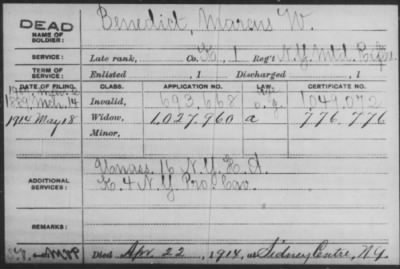 DEAD
NAME OF SOLDIER:
Benedict, Marcus W.
SERVICE:
Late rank, Co. 1 Reg't N.Y. Mtd. Rifles.
TERM OF SERVICE:
Enlisted , 1 Discharged , 1
DATE OF FILING. CLASS. APPLICATION NO. LAW. CERTIFICATE NO.
1889 Mch. 14 Invalid, 693,668 1,049,072
1914 May 18 Widow, 1,027,960 a 776,776
Minor,
ADDITIONAL SERVICES:
Unas. 16 N.Y. H.A.
4 N.Y. Pro. Cav.
REMARKS:
Died Apr. 22, 1914, at Sidney Centre, N.Y.